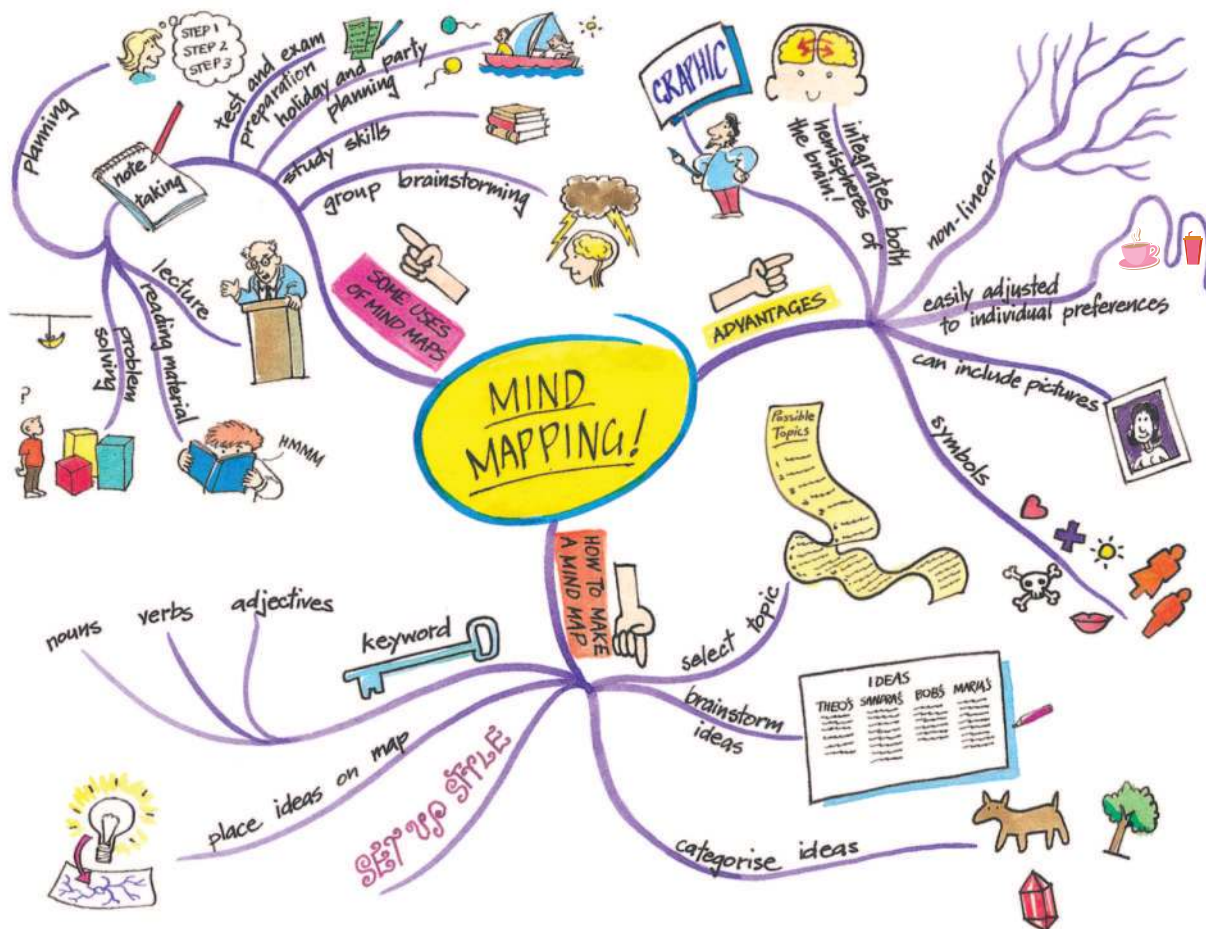 MIND
MAPPING!
SOME USES
OF MIND MAPS
planning
STEP 1
STEP 2
STEP 3
note
taking
test and exam
preparation
holiday and party
planning
study skills
group brainstorming
lecture
reading material
problem
solving
?
HMMM
ADVANTAGES
GRAPHIC
integrates both
hemispheres of
the brain!
non-linear
easily adjusted
to individual preferences
can include pictures
symbols
HOW TO MAKE
A MIND MAP
select topic
Possible
Topics
1
2
3
4
5
6
brainstorm
ideas
IDEAS
THEO'S SANDRA'S BOB'S MARIA'S
categorise ideas
SET UP STYLE
place ideas on map
keyword
nouns
verbs
adjectives